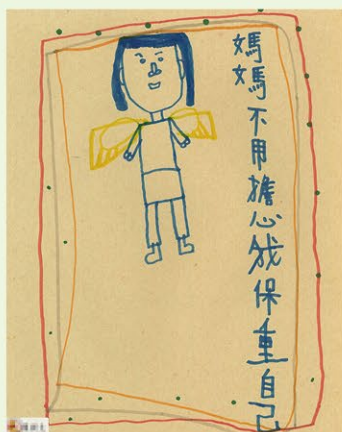 媽媽不用擔心我保重自己